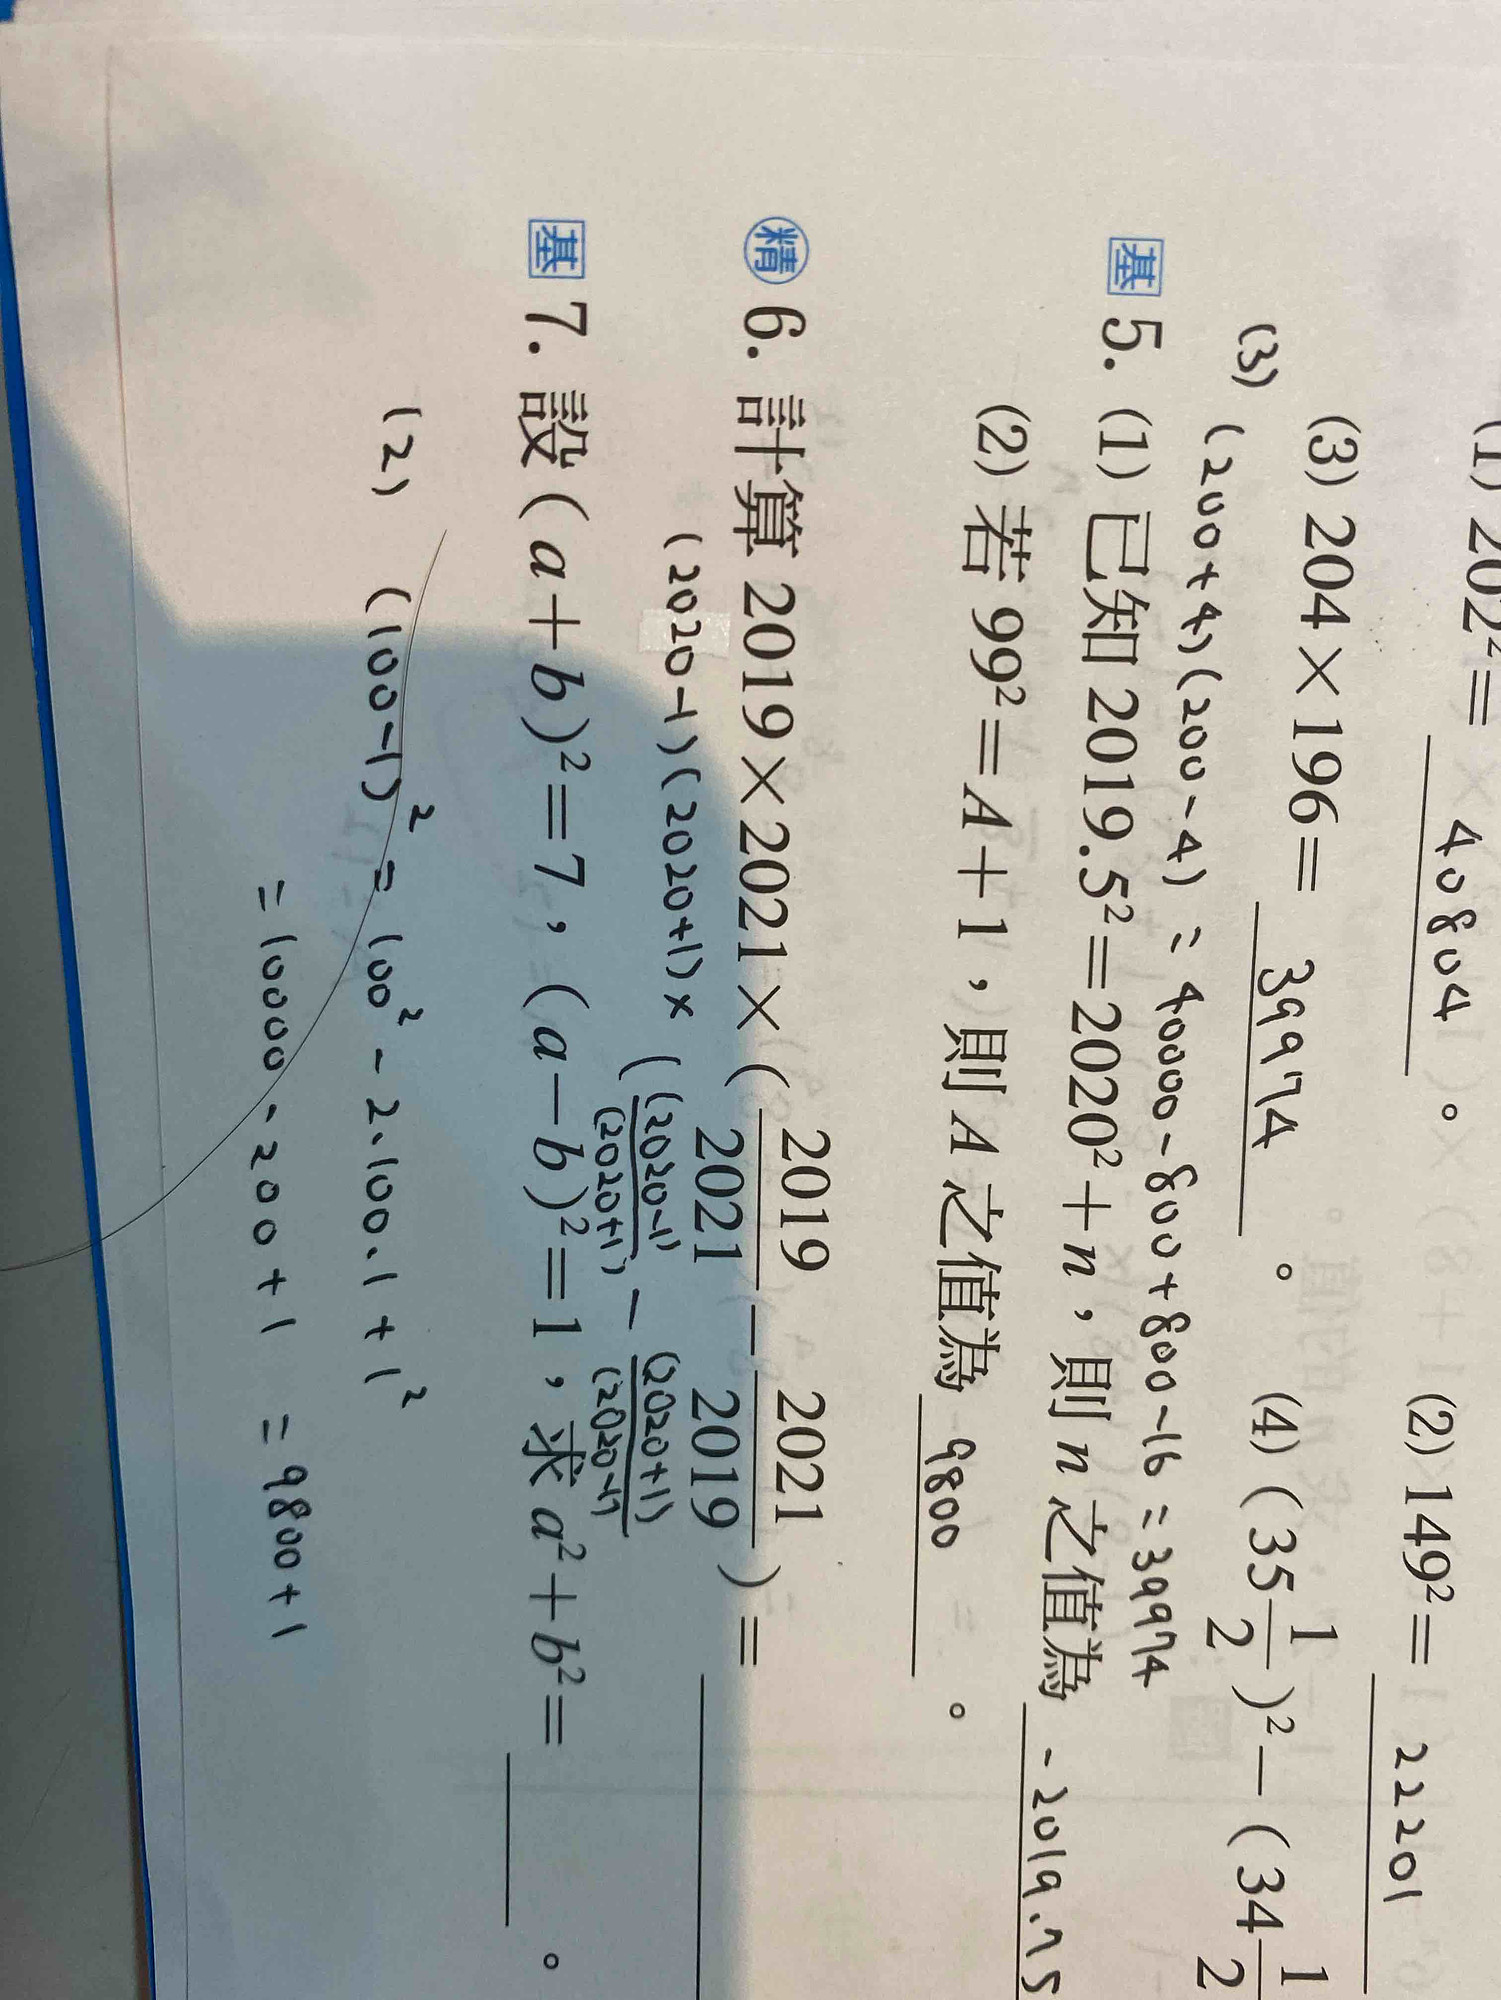 (1) 202²= 40804 。 (2) 149²= 22201
(3) 204×196= 39974 。 (4) (35 1/2)²−(34 1/2
(3) (200+4)(200-4) = 40000-800+800-16 = 39974
基 5. (1) 已知 2019.5²=2020²+n，則 n 之值為 -2019.75
(2) 若 99²=A+1，則 A 之值為 9800 。
精 6. 計算 2019×2021×(2019/2021−2021/2019)=
(2020-1)(2020+1)×((2020-1)/(2020+1) - (2020+1)/(2020-1)
基 7. 設 (a+b)²=7，(a−b)²=1，求 a²+b²= 。
(2) (100-1)² = 100² - 2.100.1 + 1²
= 10000-200+1 = 9800+1